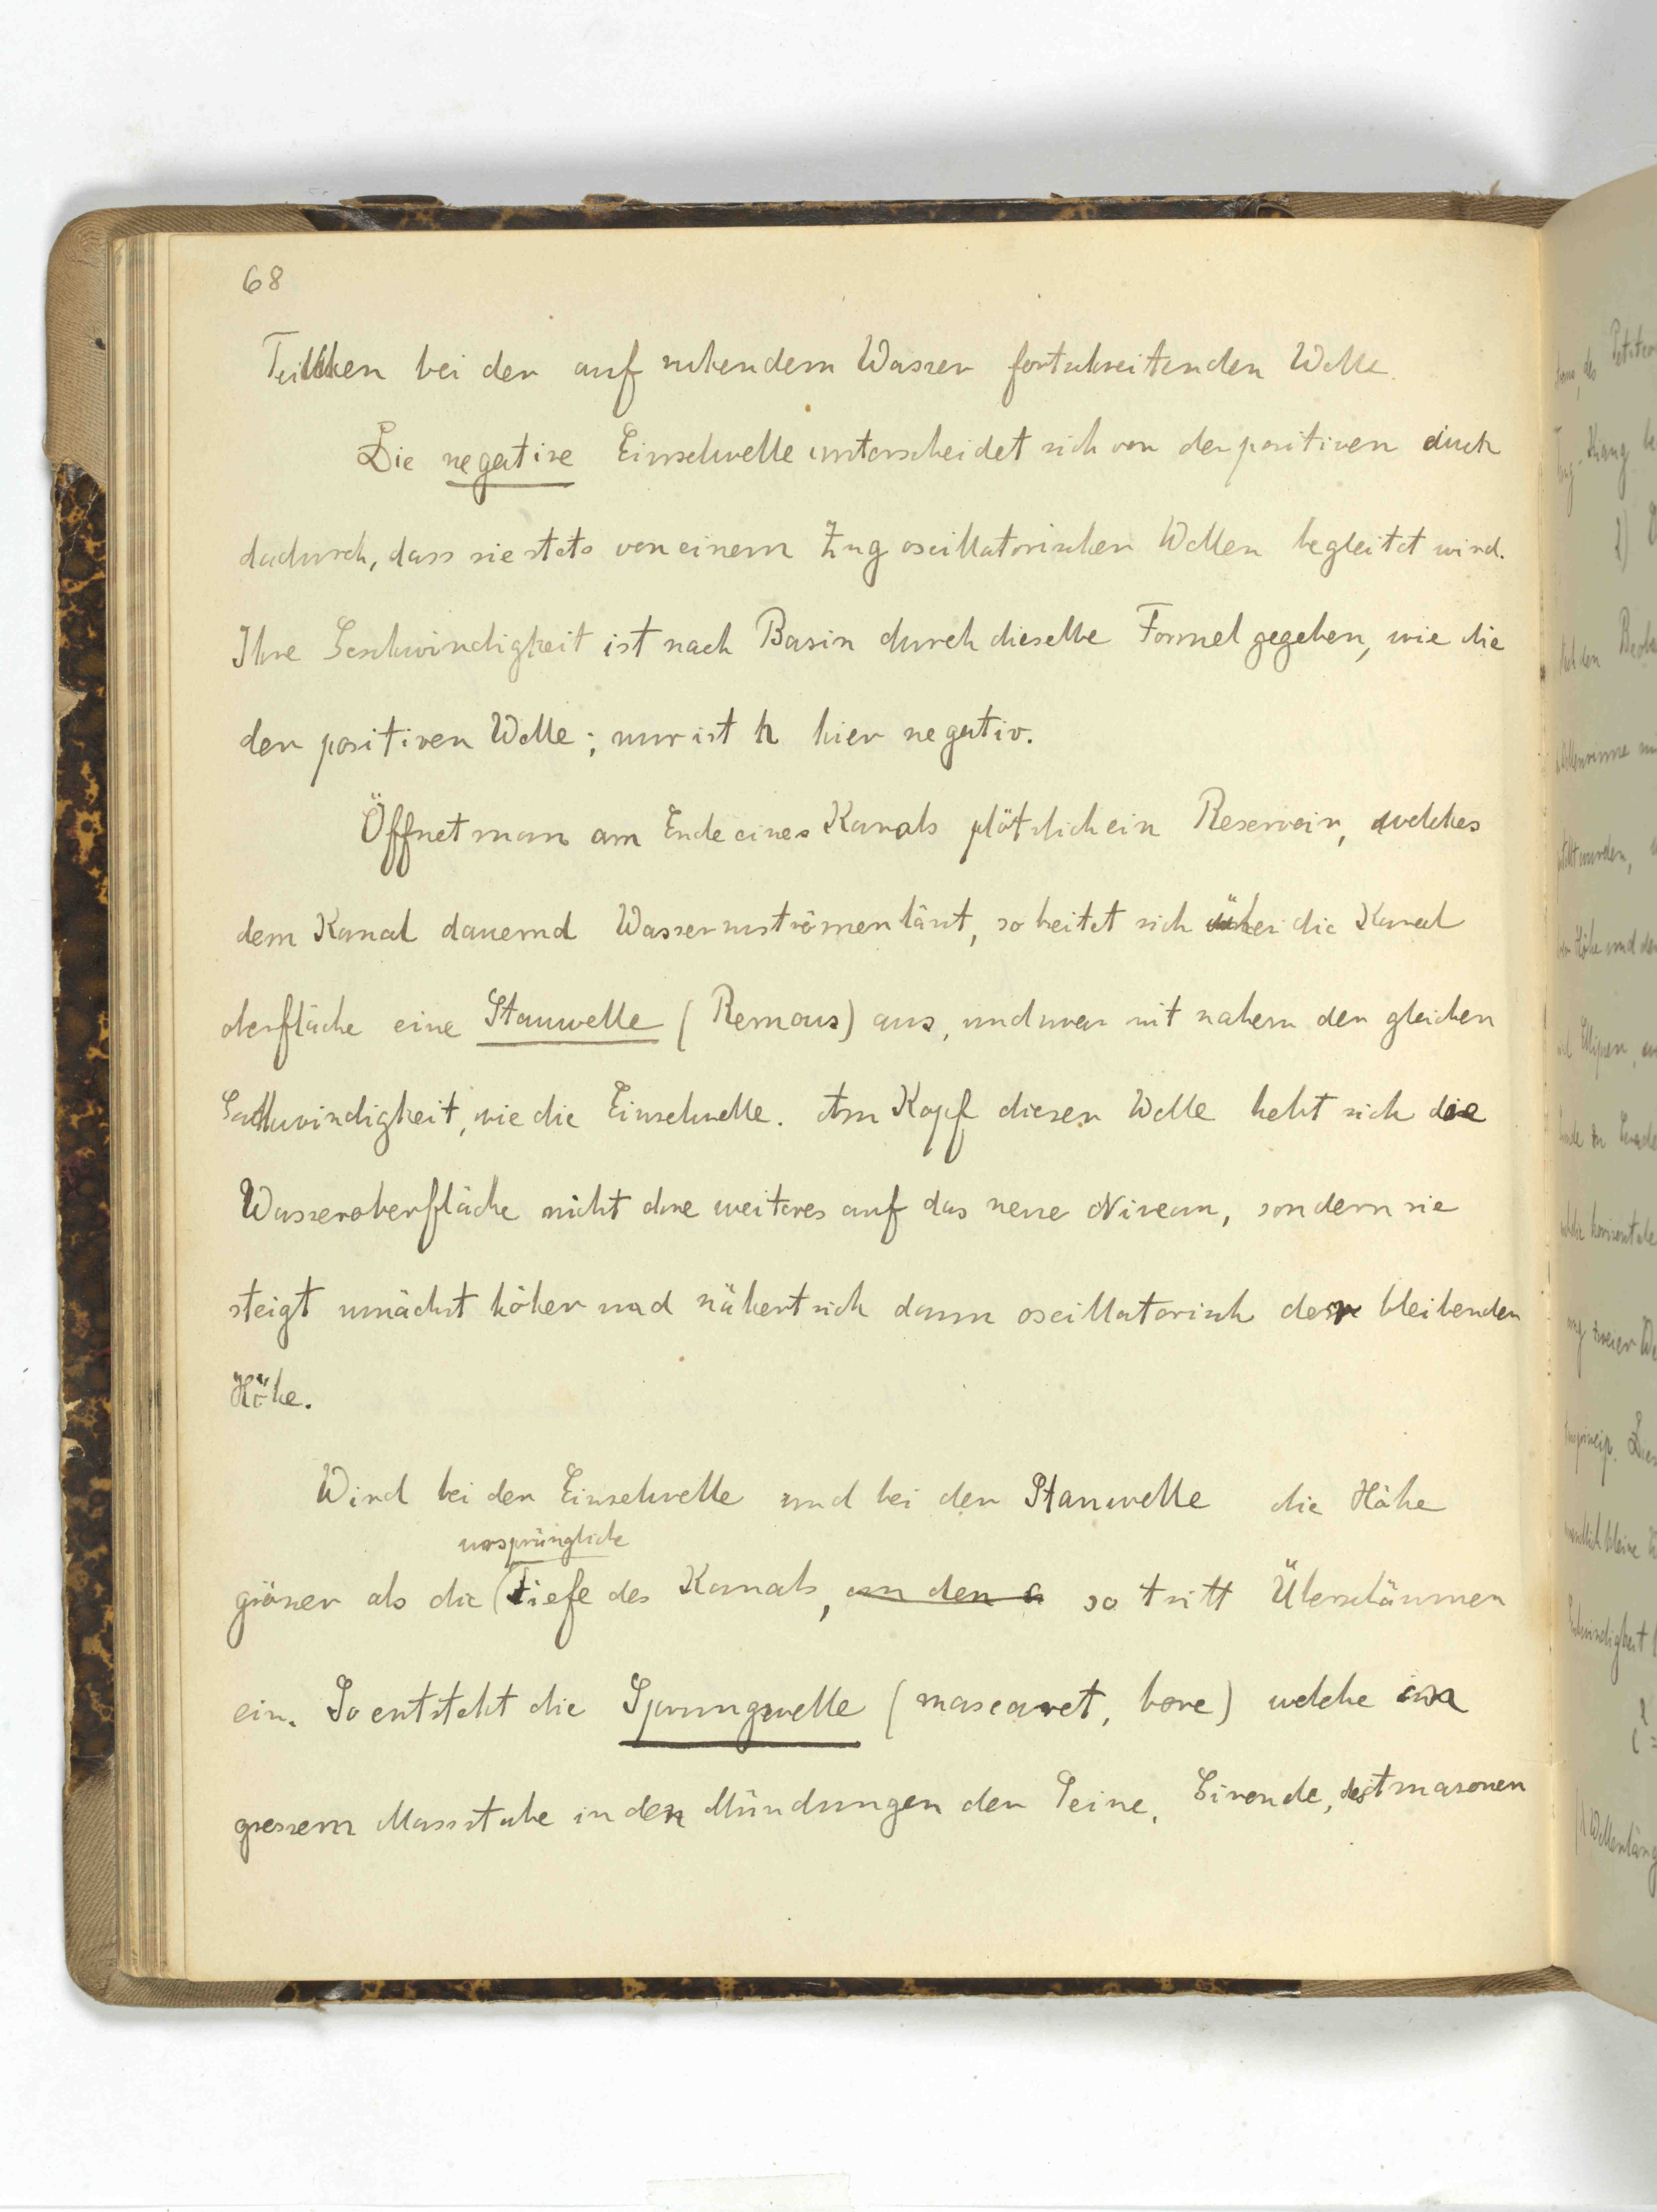 68
Teilchen bei der auf ruhendem Wasser fortschreitenden Welle.
Die negative Einzelwelle unterscheidet sich von der positiven auch
dadurch, dass sie stets von einem Zug oscillatorischer Wellen begleitet wird.
Ihre Geschwindigkeit ist nach Basin durch dieselbe Formel gegeben, wie die
der positiven Welle; nur ist h hier negativ.
Öffnet man am Ende eines Kanals plötzlich ein Reservoir, welches
dem Kanal dauernd Wasser zuströmen lässt, so breitet sich über die Kanal
oberfläche eine Stauwelle (Remous) aus, und zwar mit nahezu der gleichen
Geschwindigkeit, wie die Einzelwelle. Am Kopf dieser Welle hebt sich die
Wasseroberfläche nicht ohne weiteres auf das neue Niveau, sondern sie
steigt zunächst höher und nähert sich dann oscillatorisch der bleibenden
Höhe.
Wird bei der Einzelwelle und bei der Stauwelle die Höhe
ursprüngliche
grösser als die (Tiefe des Kanals, an den a so tritt Überschäumen
ein. So entsteht die Sprungwelle (mascaret, bore) welche in
grossem Massstabe in den Mündungen der Seine, Gironde, des Amazonen